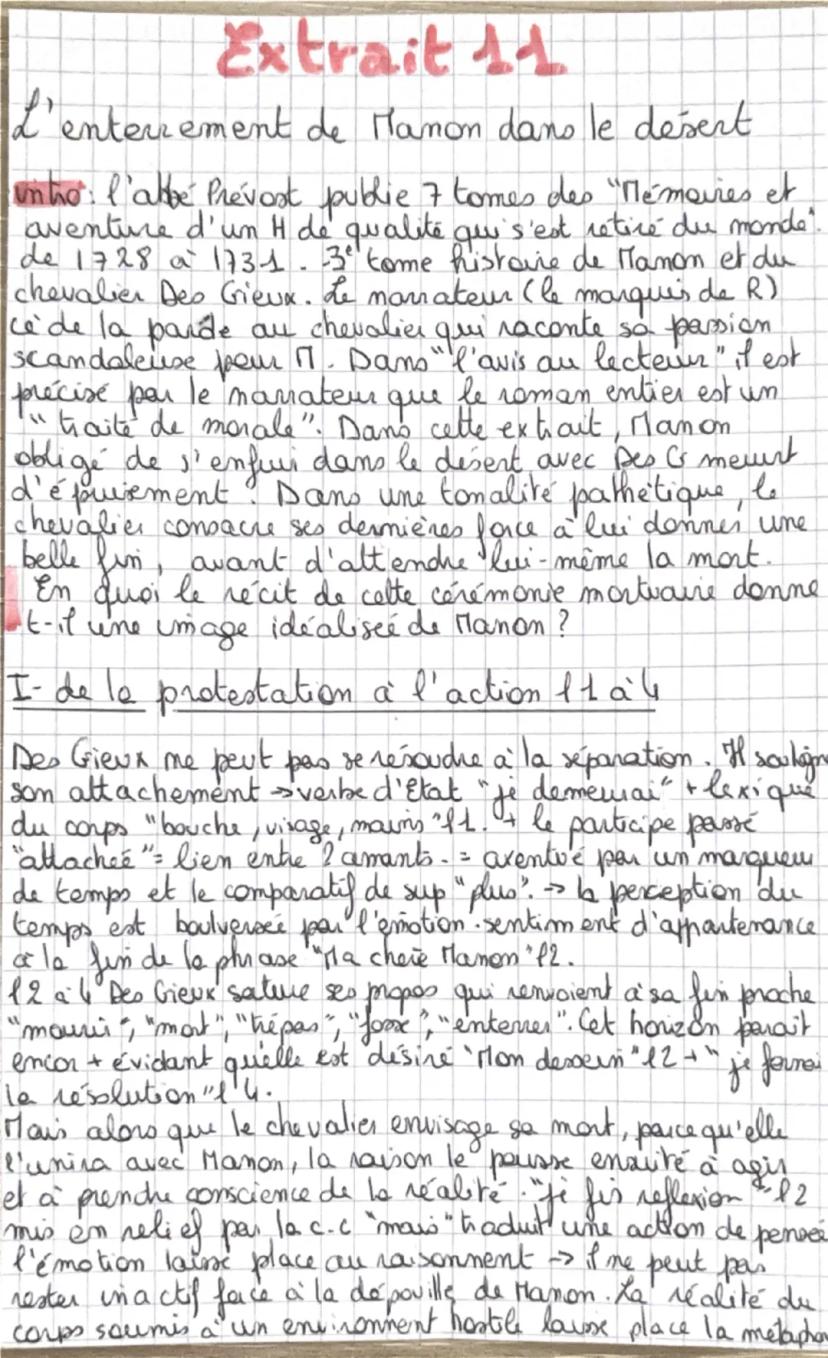 Extrait 11
L'enterrement de Manon dans le désert
intro : l'abbé Prévost publie 7 tomes des "Mémoires et
aventure d'un H de qualité qui s'est retiré du monde".
de 1728 à 1731. 3e tome histoire de Manon et du
chevalier Des Grieux. Le narrateur (le marquis de R)
cède la parole au chevalier qui raconte sa passion
scandaleuse pour M. Dans "l'avis au lecteur" il est
précisé par le narrateur que le roman entier est un
"traité de morale". Dans cette extrait, Manon
obligé de s'enfuir dans le désert avec Des G meurt
d'épuisement. Dans une tonalité pathétique, le
chevalier consacre ses dernières force à lui donner une
belle fin, avant d'attendre lui-même la mort.
En quoi le récit de cette cérémonie mortuaire donne
t-il une image idéalisée de Manon ?
I- de la protestation à l'action l1 à 4
Des Grieux ne peut pas se résoudre à la séparation. Il souligne
son attachement -> verbe d'Etat "je demeurai" + lexique
du corps "bouche, visage, mains" l1. + le participe passé
"attachée" = lien entre 2 amants. = accentué par un marqueur
de temps et le comparatif de sup "plus". -> la perception du
temps est boulversée par l'émotion. sentiment d'appartenance
à la fin de la phrase "Ma chère Manon" l2.
l2 à 4 Des Grieux sature ses propos qui renvoient à sa fin proche
"mourir", "mort", "trépas", "fosse", "enterrer". Cet horizon parait
encor + évidant qu'elle est désiré "Mon dessein" l2 + "je formai
la résolution" l4.
Mais alors que le chevalier envisage sa mort, parce qu'elle
l'unira avec Manon, la raison le pousse ensuite à agir
et à prendre conscience de la réalité. "je fis reflexion" l2
mis en relief par la c.c "mais" traduit une action de pensée
l'émotion laisse place au raisonnent -> il ne peut pas
rester inactif face à la dépouille de Manon. La réalité du
corps soumis à un environnent hostile laisse place la métaphor